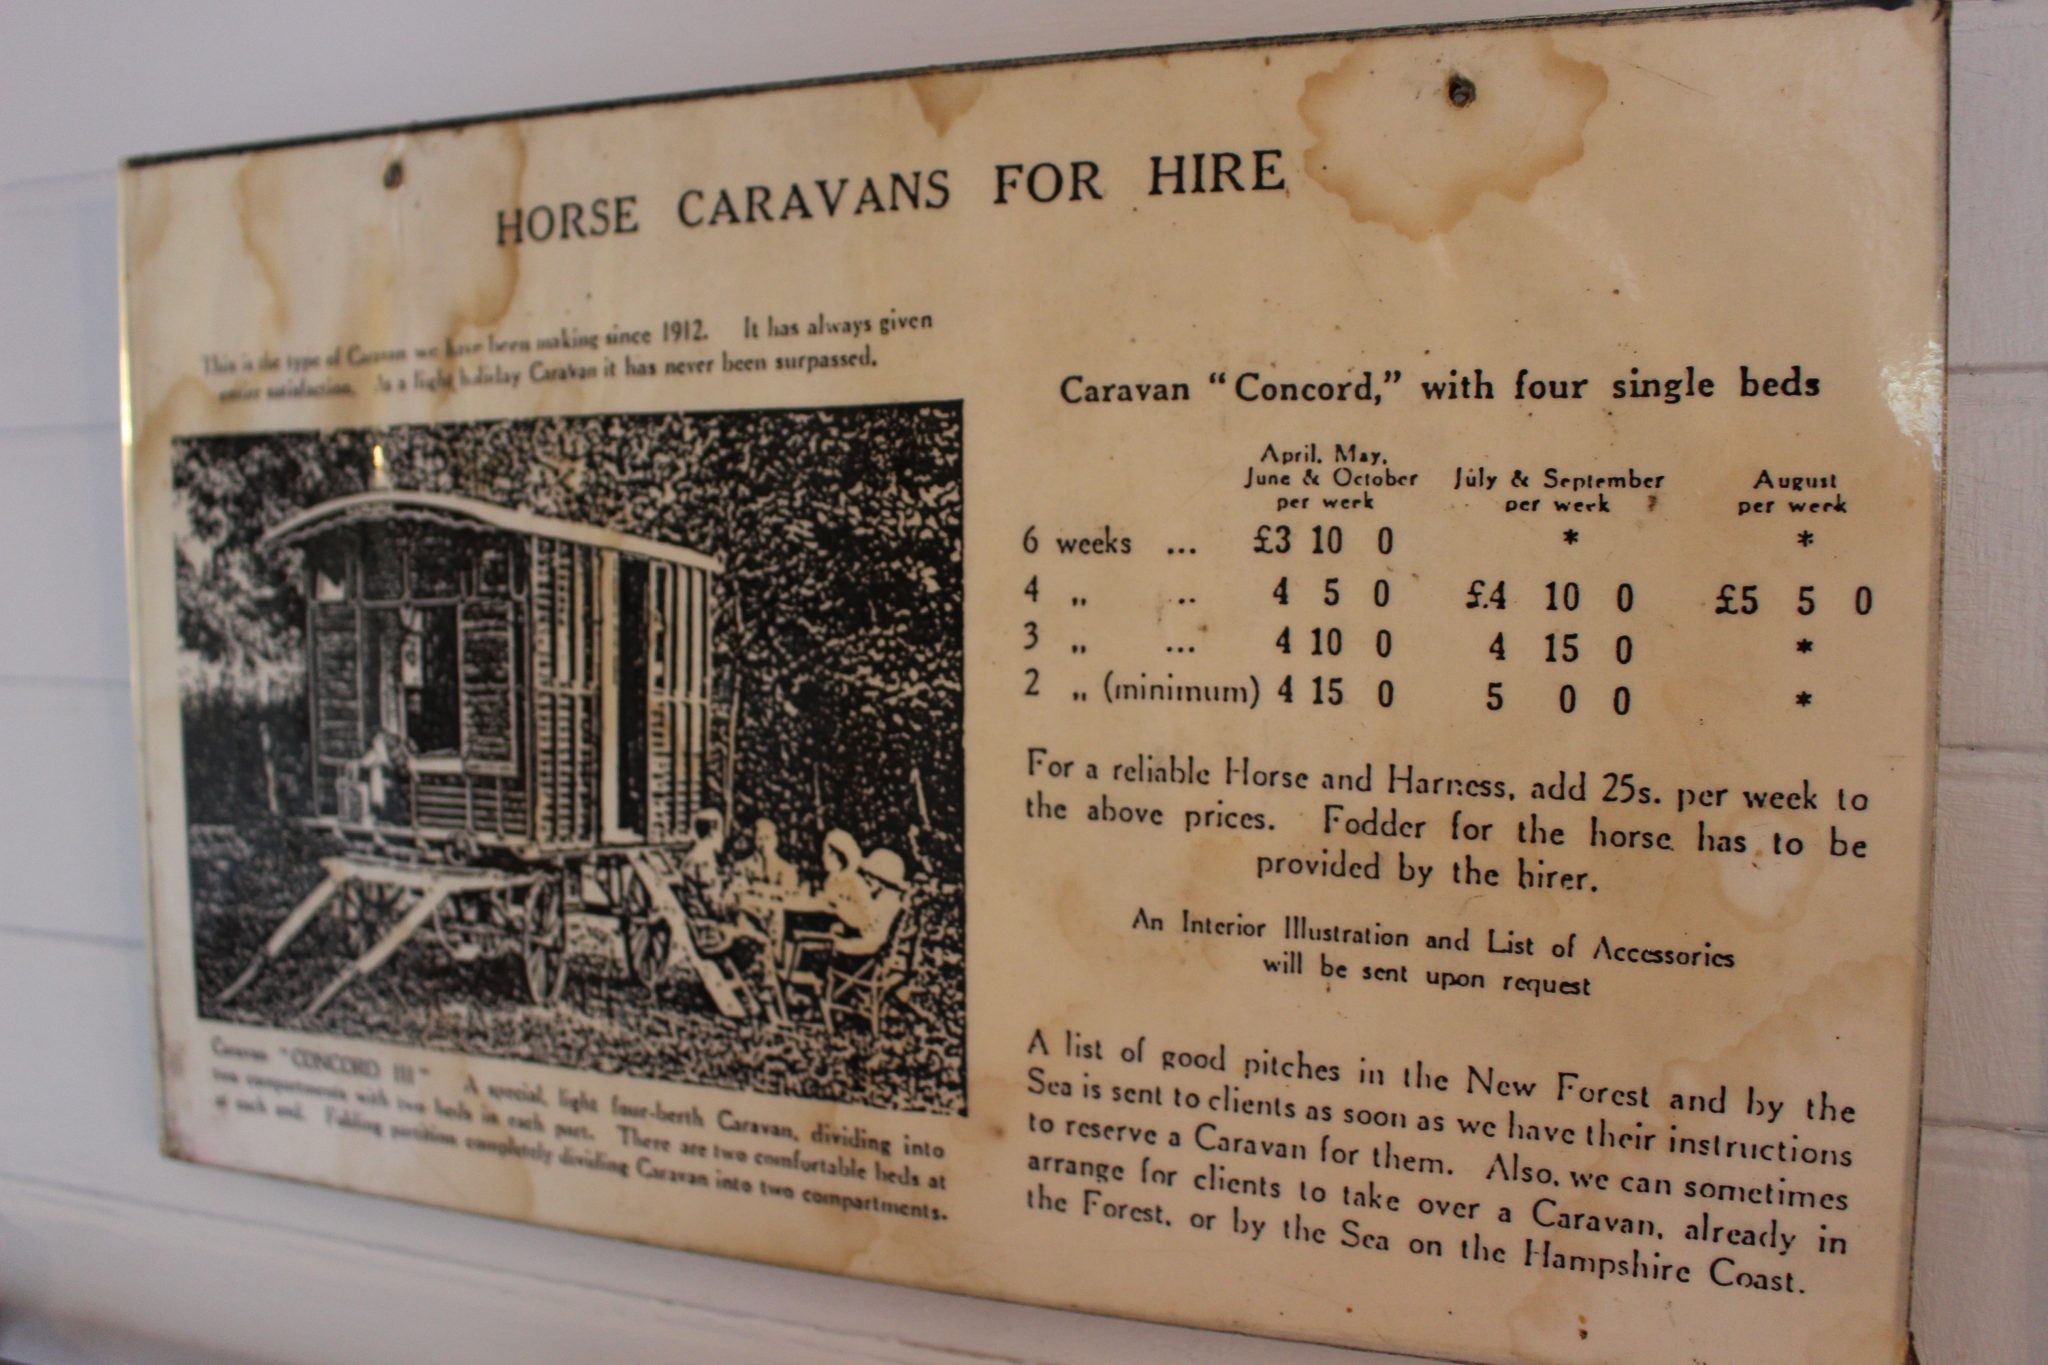 HORSE CARAVANS FOR HIRE
This is the type of Caravan we have been making since 1912. It has always given
entire satisfaction. As a light holiday Caravan it has never been surpassed.
Caravan "CONCORD III" A special, light four-berth Caravan, dividing into
two compartments with two beds in each part. There are two comfortable beds at
at each end. Folding partition completely dividing Caravan into two compartments.
Caravan "Concord," with four single beds
April, May,
June & October July & September August
per week per week per week
6 weeks ... £3 10 0 * *
4 ,, .. 4 5 0 £4 10 0 £5 5 0
3 ,, ... 4 10 0 4 15 0 *
2 ,, (minimum) 4 15 0 5 0 0 *
For a reliable Horse and Harness, add 25s. per week to
the above prices. Fodder for the horse has to be
provided by the hirer.
An Interior Illustration and List of Accessories
will be sent upon request
A list of good pitches in the New Forest and by the
Sea is sent to clients as soon as we have their instructions
to reserve a Caravan for them. Also, we can sometimes
arrange for clients to take over a Caravan, already in
the Forest, or by the Sea on the Hampshire Coast.